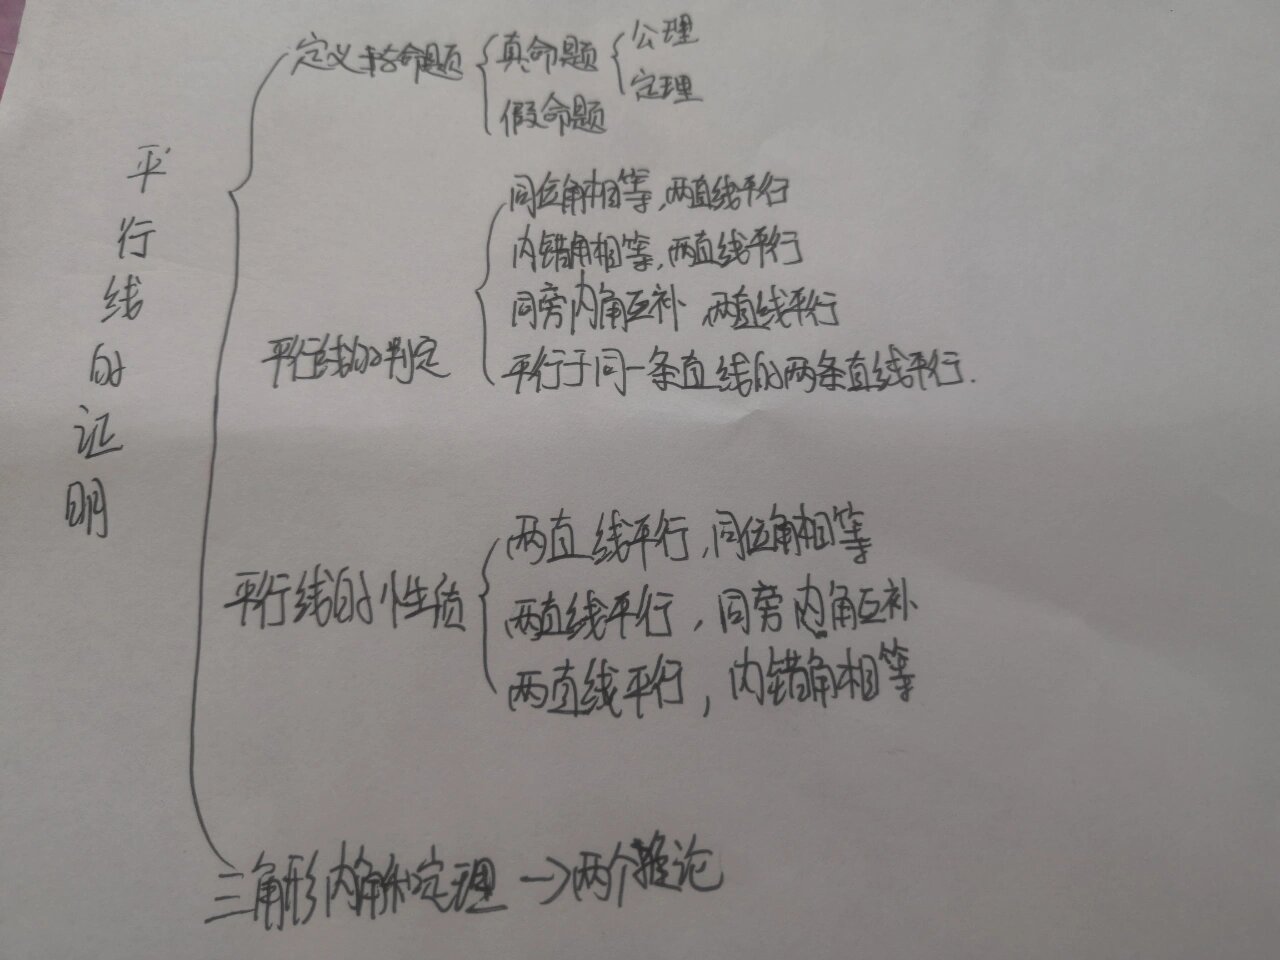 平行线的证明
定义与命题
真命题
公理
定理
假命题
平行线的判定
同位角相等,两直线平行
内错角相等,两直线平行
同旁内角互补 两直线平行
平行于同一条直线的两条直线平行.
平行线的性质
两直线平行,同位角相等
两直线平行,同旁内角互补
两直线平行,内错角相等
三角形内角和定理→两个推论